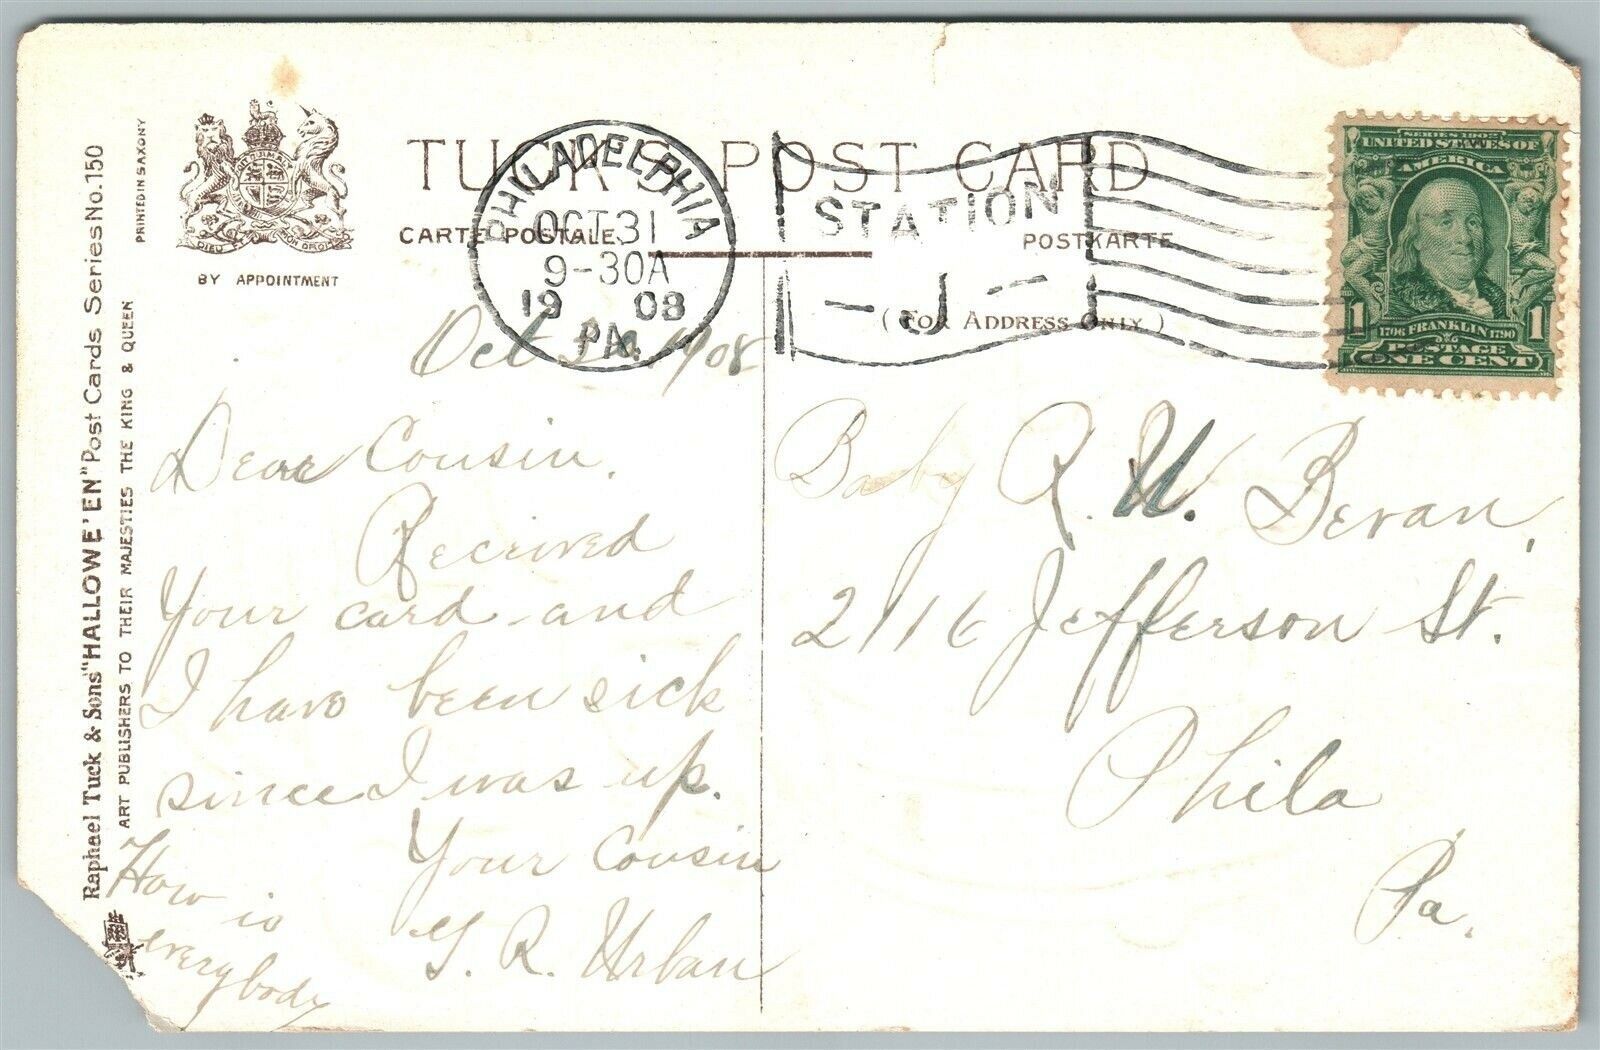 TUCK'S POST CARD
CARTE POSTALE
POSTKARTE
(FOR ADDRESS ONLY)
BY APPOINTMENT
DIEU ET MON DROIT
PRINTED IN SAXONY
Raphael Tuck & Sons' "HALLOWE'EN" Post Cards Series No. 150
ART PUBLISHERS TO THEIR MAJESTIES THE KING & QUEEN
PHILADELPHIA
OCT 31
9-30A
1908
PA.
STATION
- J -
SERIES 1902
UNITED STATES OF
AMERICA
1 1706 FRANKLIN 1790 1
POSTAGE
ONE CENT
Oct 1908
Dear Cousin.
Received
Your card and
I have been sick
since I was up.
Your Cousin
R. Urban
How is
everybody
Baby R. W. Bevan,
2116 Jefferson St.
Phila
Pa.